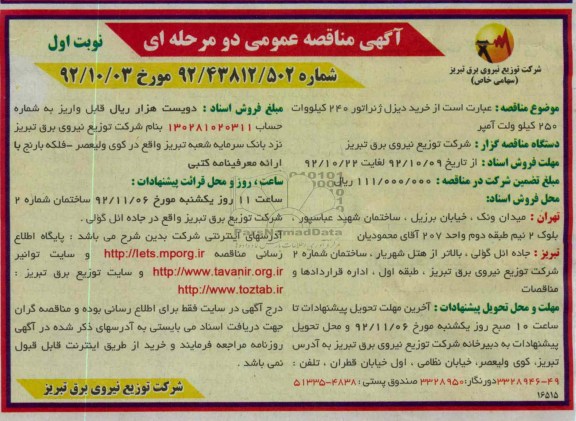 آگهی مناقصه عمومی دو مرحله ای
نوبت اول
شماره ۹۲/۴۳۸۱۲/۵۰۲ مورخ ۹۲/۱۰/۰۳
شرکت توزیع نیروی برق تبریز
(سهامی خاص)
موضوع مناقصه : عبارت است از خرید دیزل ژنراتور ۲۴۰ کیلووات
۲۵۰ کیلو ولت آمپر
دستگاه مناقصه گزار : شرکت توزیع نیروی برق تبریز
مهلت فروش اسناد : از تاریخ ۹۲/۱۰/۰۹ لغایت ۹۲/۱۰/۲۲
مبلغ تضمین شرکت در مناقصه : ۱۱۱/۰۰۰/۰۰۰ ریال
محل فروش اسناد:
تهران : میدان ونک ، خیابان برزیل ، ساختمان شهید عباسپور ،
بلوک ۲ نیم طبقه دوم واحد ۲۰۷ آقای محمودیان
تبریز : جاده ائل گؤلی ، بالاتر از هتل شهریار ، ساختمان شماره ۲
شرکت توزیع نیروی برق تبریز ، طبقه اول ، اداره قراردادها و
مناقصات
مهلت و محل تحویل پیشنهادات : آخرین مهلت تحویل پیشنهادات تا
ساعت ۱۰ صبح روز یکشنبه مورخ ۹۲/۱۱/۰۶ و محل تحویل
پیشنهادات به دبیرخانه شرکت توزیع نیروی برق تبریز به آدرس
تبریز، کوی ولیعصر، خیابان نظامی ، اول خیابان قطران ، تلفن :
۳۳۲۸۹۴۶-۴۹ دورنگار: ۳۳۲۸۹۵۰ صندوق پستی : ۴۸۳۸-۵۱۳۳۵
۱۶۵۱۵
مبلغ فروش اسناد : دویست هزار ریال قابل واریز به شماره
حساب ۱۳۰۲۸۱۰۲۰۳۱۱ بنام شرکت توزیع نیروی برق تبریز
نزد بانک سرمایه شعبه تبریز واقع در کوی ولیعصر -فلکه بارنج با
ارائه معرفینامه کتبی
ساعت ، روز و محل قرائت پیشنهادات :
ساعت ۱۱ روز یکشنبه مورخ ۹۲/۱۱/۰۶ ساختمان شماره ۲
شرکت توزیع برق تبریز واقع در جاده ائل گؤلی .
آدرسهای اینترنتی شرکت بدین شرح می باشد : پایگاه اطلاع
رسانی مناقصه http://iets.mporg.ir و سایت توانیر
http://www.tavanir.org.ir و سایت توزیع برق تبریز :
http://www.toztab.ir
درج آگهی در سایت فقط برای اطلاع رسانی بوده و مناقصه گران
جهت دریافت اسناد می بایستی به آدرسهای ذکر شده در آگهی
روزنامه مراجعه فرمایند و خرید از طریق اینترنت قابل قبول
نمی باشد .
شرکت توزیع نیروی برق تبریز